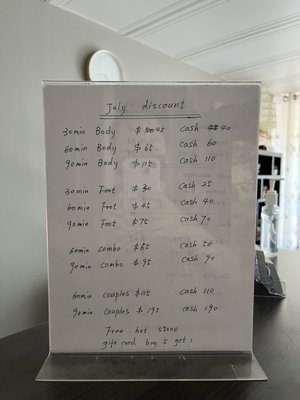 July discount
30min Body $ 45 cash 40
60min Body $ 65 cash 60
90min Body $ 115 cash 110
30min Foot $ 30 cash 25
60min Foot $ 45 cash 40
90min Foot $ 75 cash 70
60min combo $ 65 cash 50
90min combo $ 95 cash 90
60min couples $ 115 cash 110
90min couples $ 195 cash 190
Free hot stone
gift card buy 5 get 1